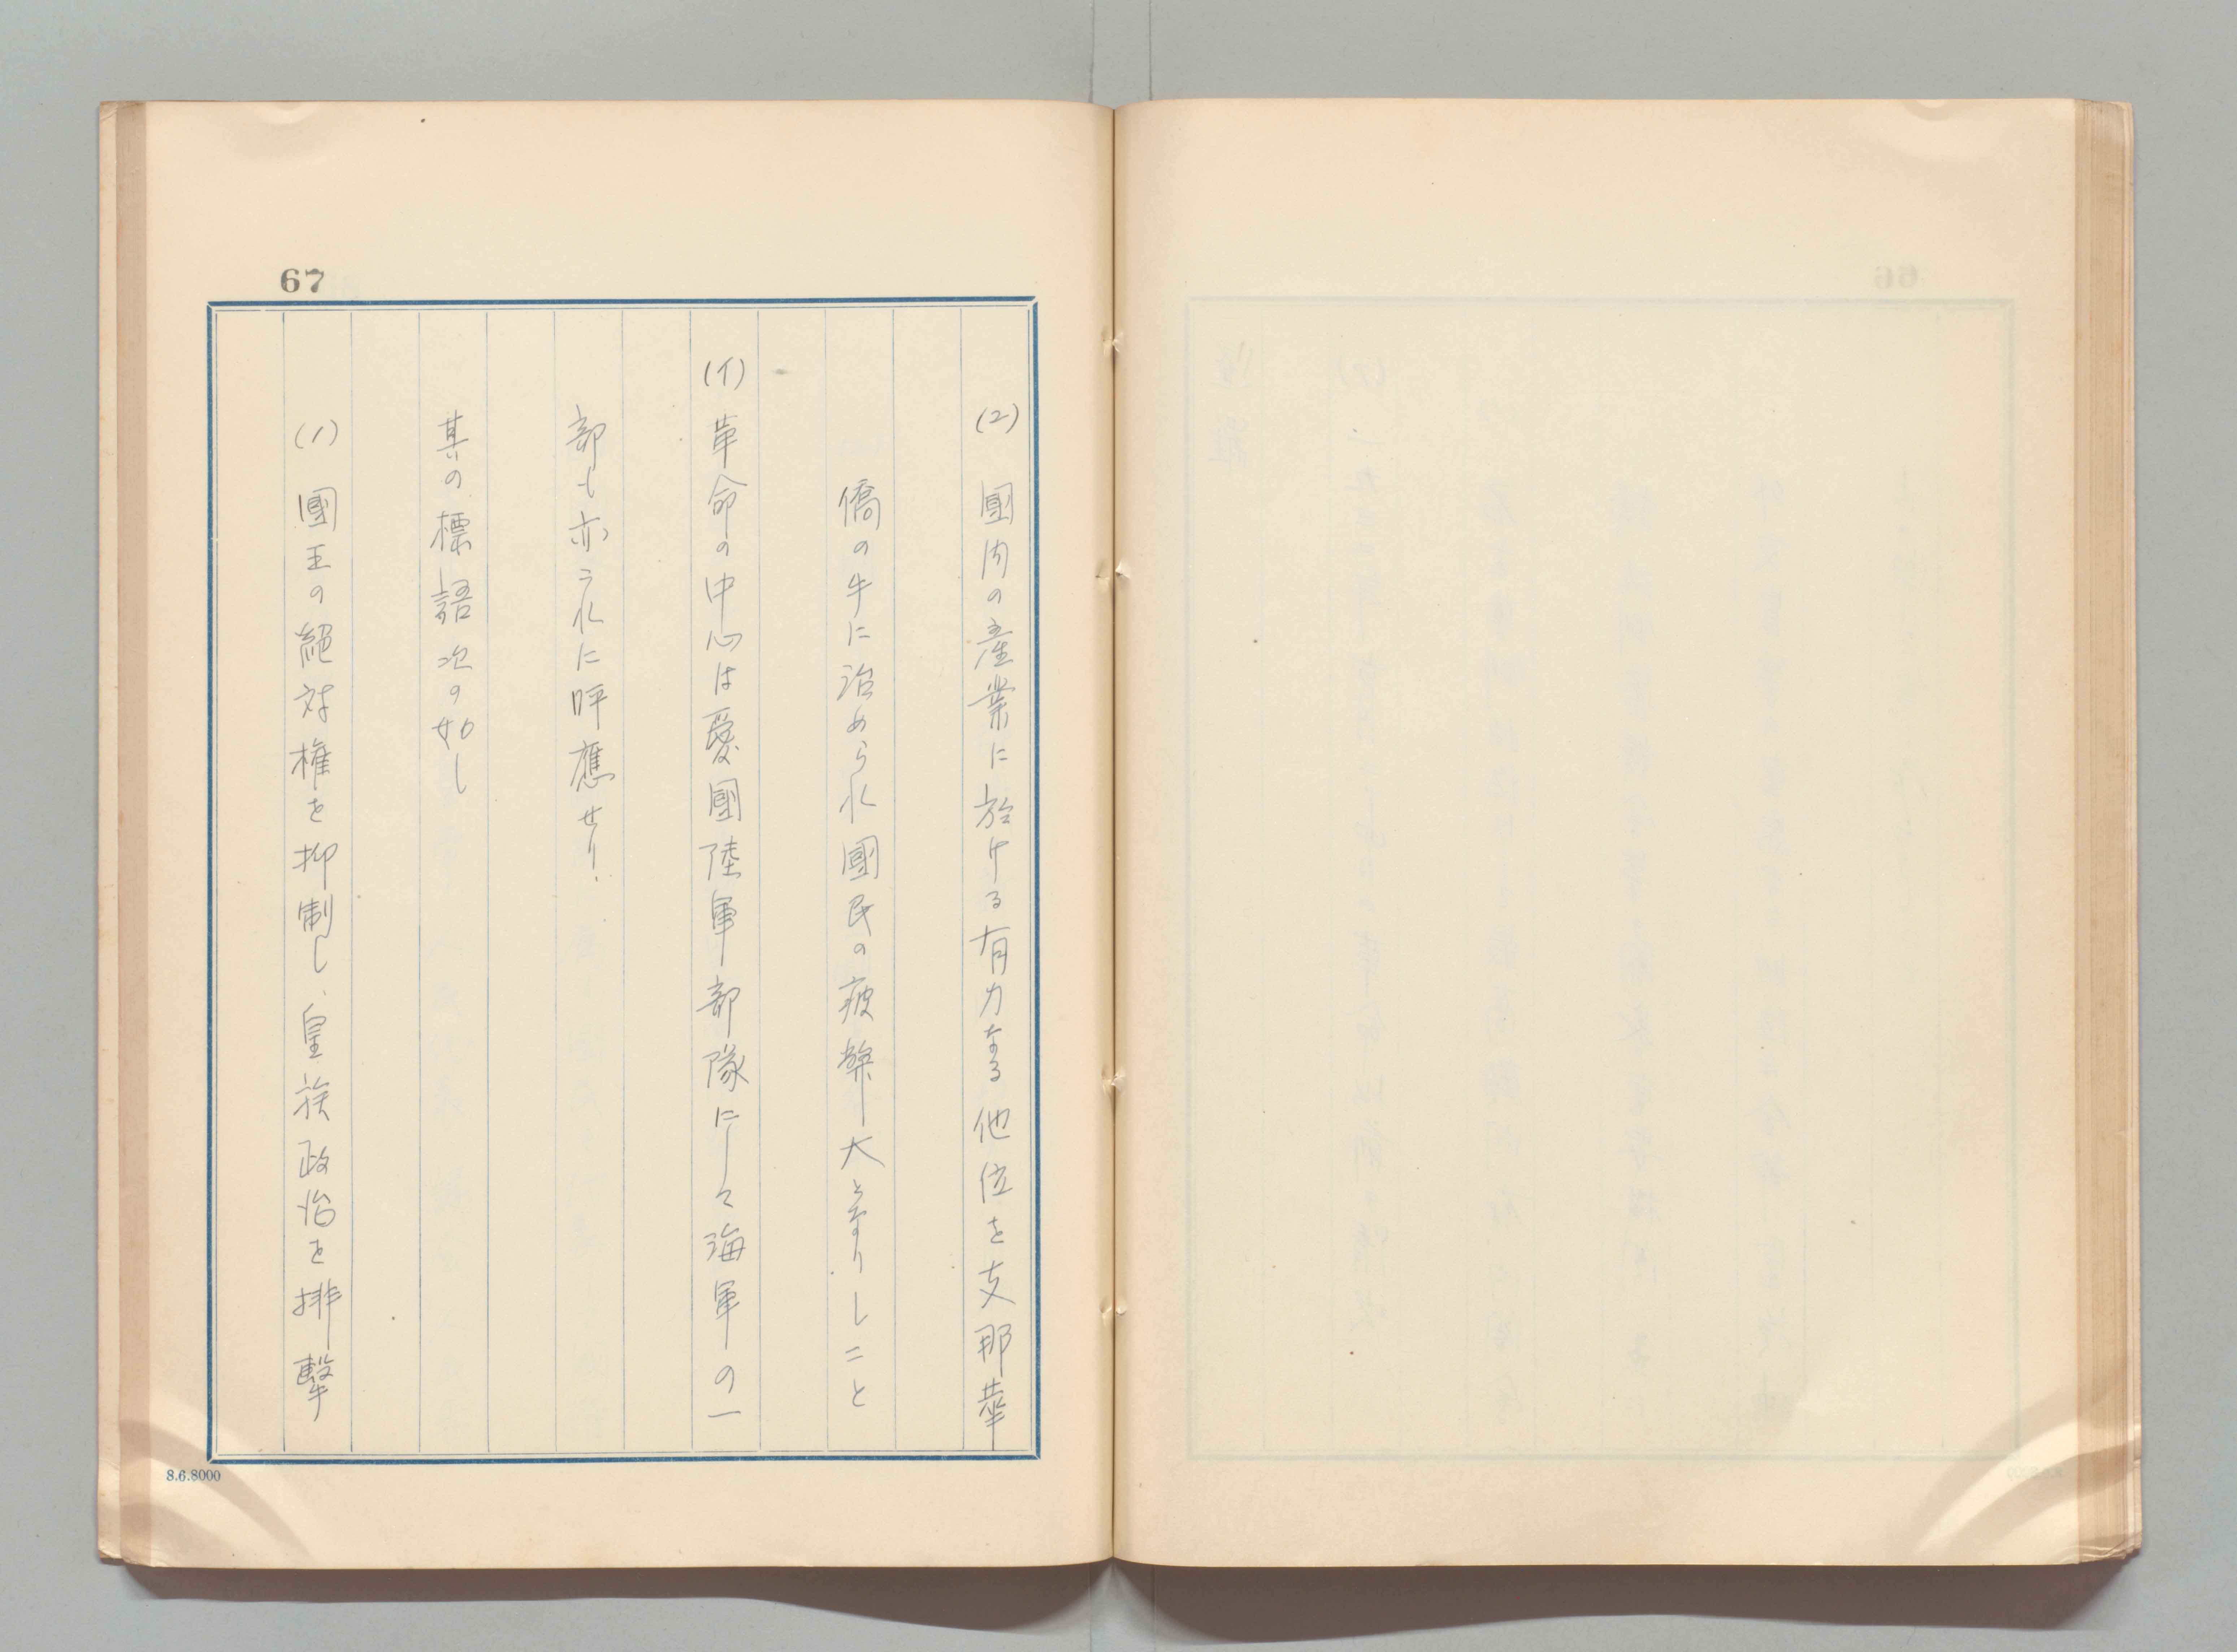 67
(2) 國内の産業に於ける有力なる他位を支那華
僑の手に治められ國民の疲弊大となりしこと
(イ) 革命の中心は愛國陸軍部隊にして海軍の一
部も亦之れに呼應せり.
其の標語次の如し
(1) 國王の絕対権を抑制し、皇族政治を排撃
8.6.8000